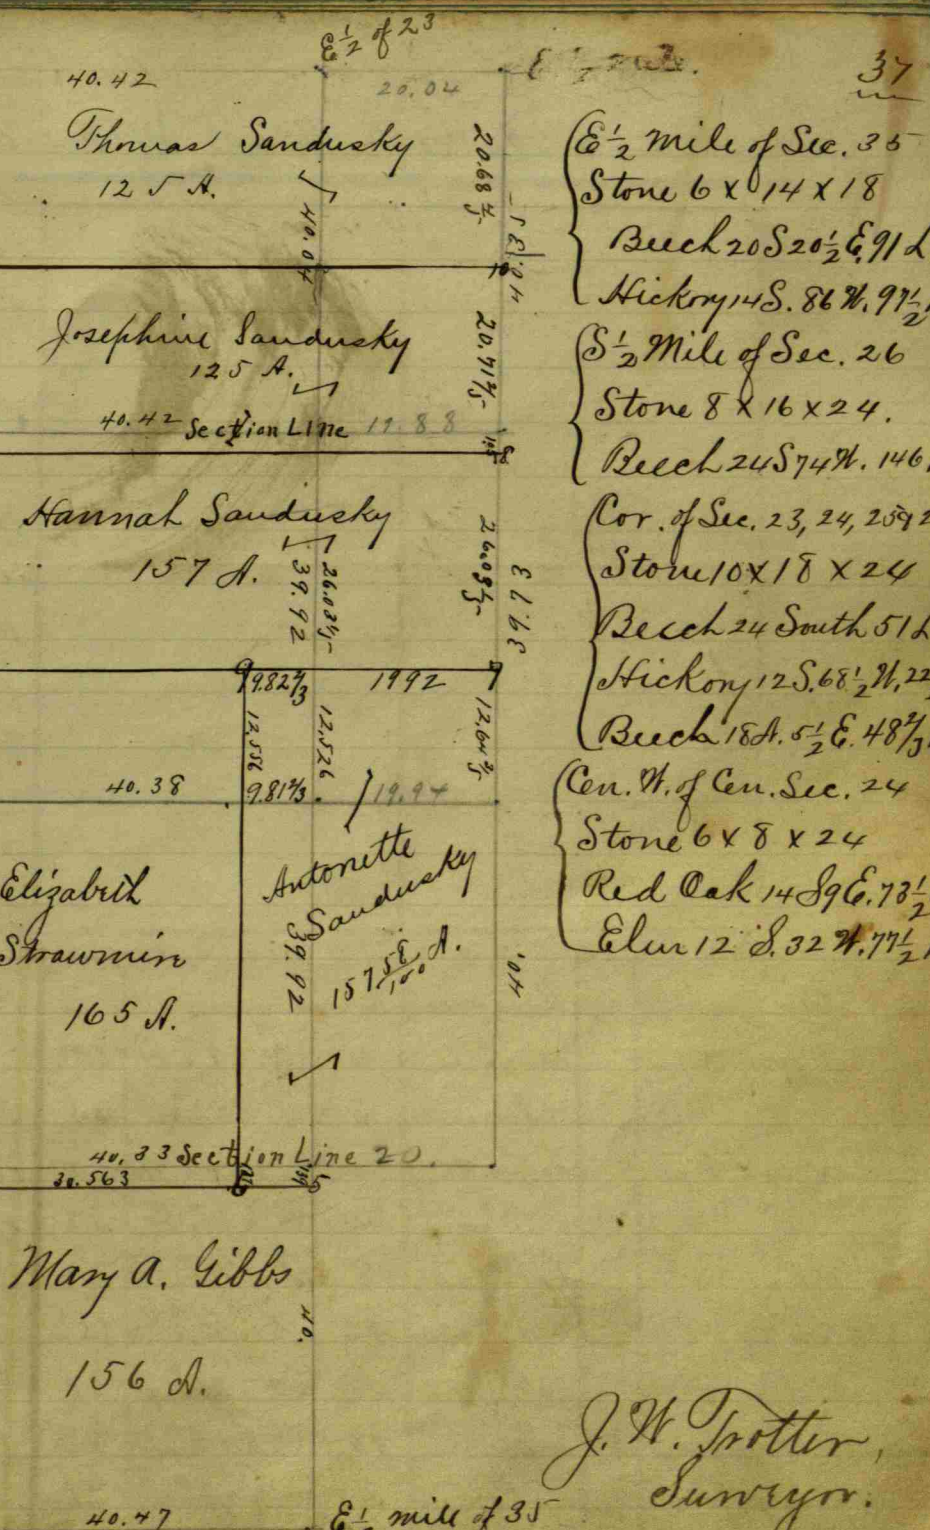 E½ of 23
37
40.42
20.04
Thomas Sandusky
125 A.
20.68
40.04
Josephine Sandusky
125 A.
40.42 Section Line 19.88
Hannah Sandusky
157 A.
39.92
39.73
1992
12.526
40.38
19.94
Elizabeth
Strawmin
165 A.
Antonette
Sandusky
157 58/100 A.
39.92
40.
40.33 Section Line 20.
30.563
Mary A. Gibbs
40.
156 A.
40.47
E½ mile of 35
E½ Mile of Sec. 35
Stone 6 x 14 x 18
Beech 20 S 20½ E. 91 L
Hickory 14 S. 86 W. 97½
S½ Mile of Sec. 26
Stone 8 x 16 x 24.
Beech 24 S 74 W. 146
Cor. of Sec. 23, 24, 25 & 2
Stone 10 x 18 x 24
Beech 24 South 51 L
Hickory 12 S. 68½ W. 22
Beech 18 N. 5½ E. 48
Cen. W. of Cen. Sec. 24
Stone 6 x 8 x 24
Red Oak 14 S 9 E. 73½
Elm 12 S. 32 W. 77½
J. W. Trotter,
Surveyor.